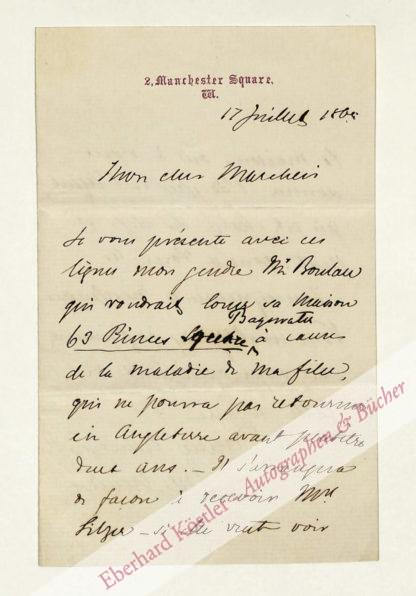 2, Manchester Square.
W.
17 Juillet 186
Mon cher
Je vous présente avec ces
lignes mon gendre Mr
qui voudrait louer sa Maison
Bayswater
63 Princes Square à cause
de la maladie de ma fille,
qui ne pourra pas retourner
en Angleterre avant peut-être
deux ans. — Il s'arrangera
de façon à recevoir
— si elle veut voir
Eberhard Köstler - Autographen & Bücher